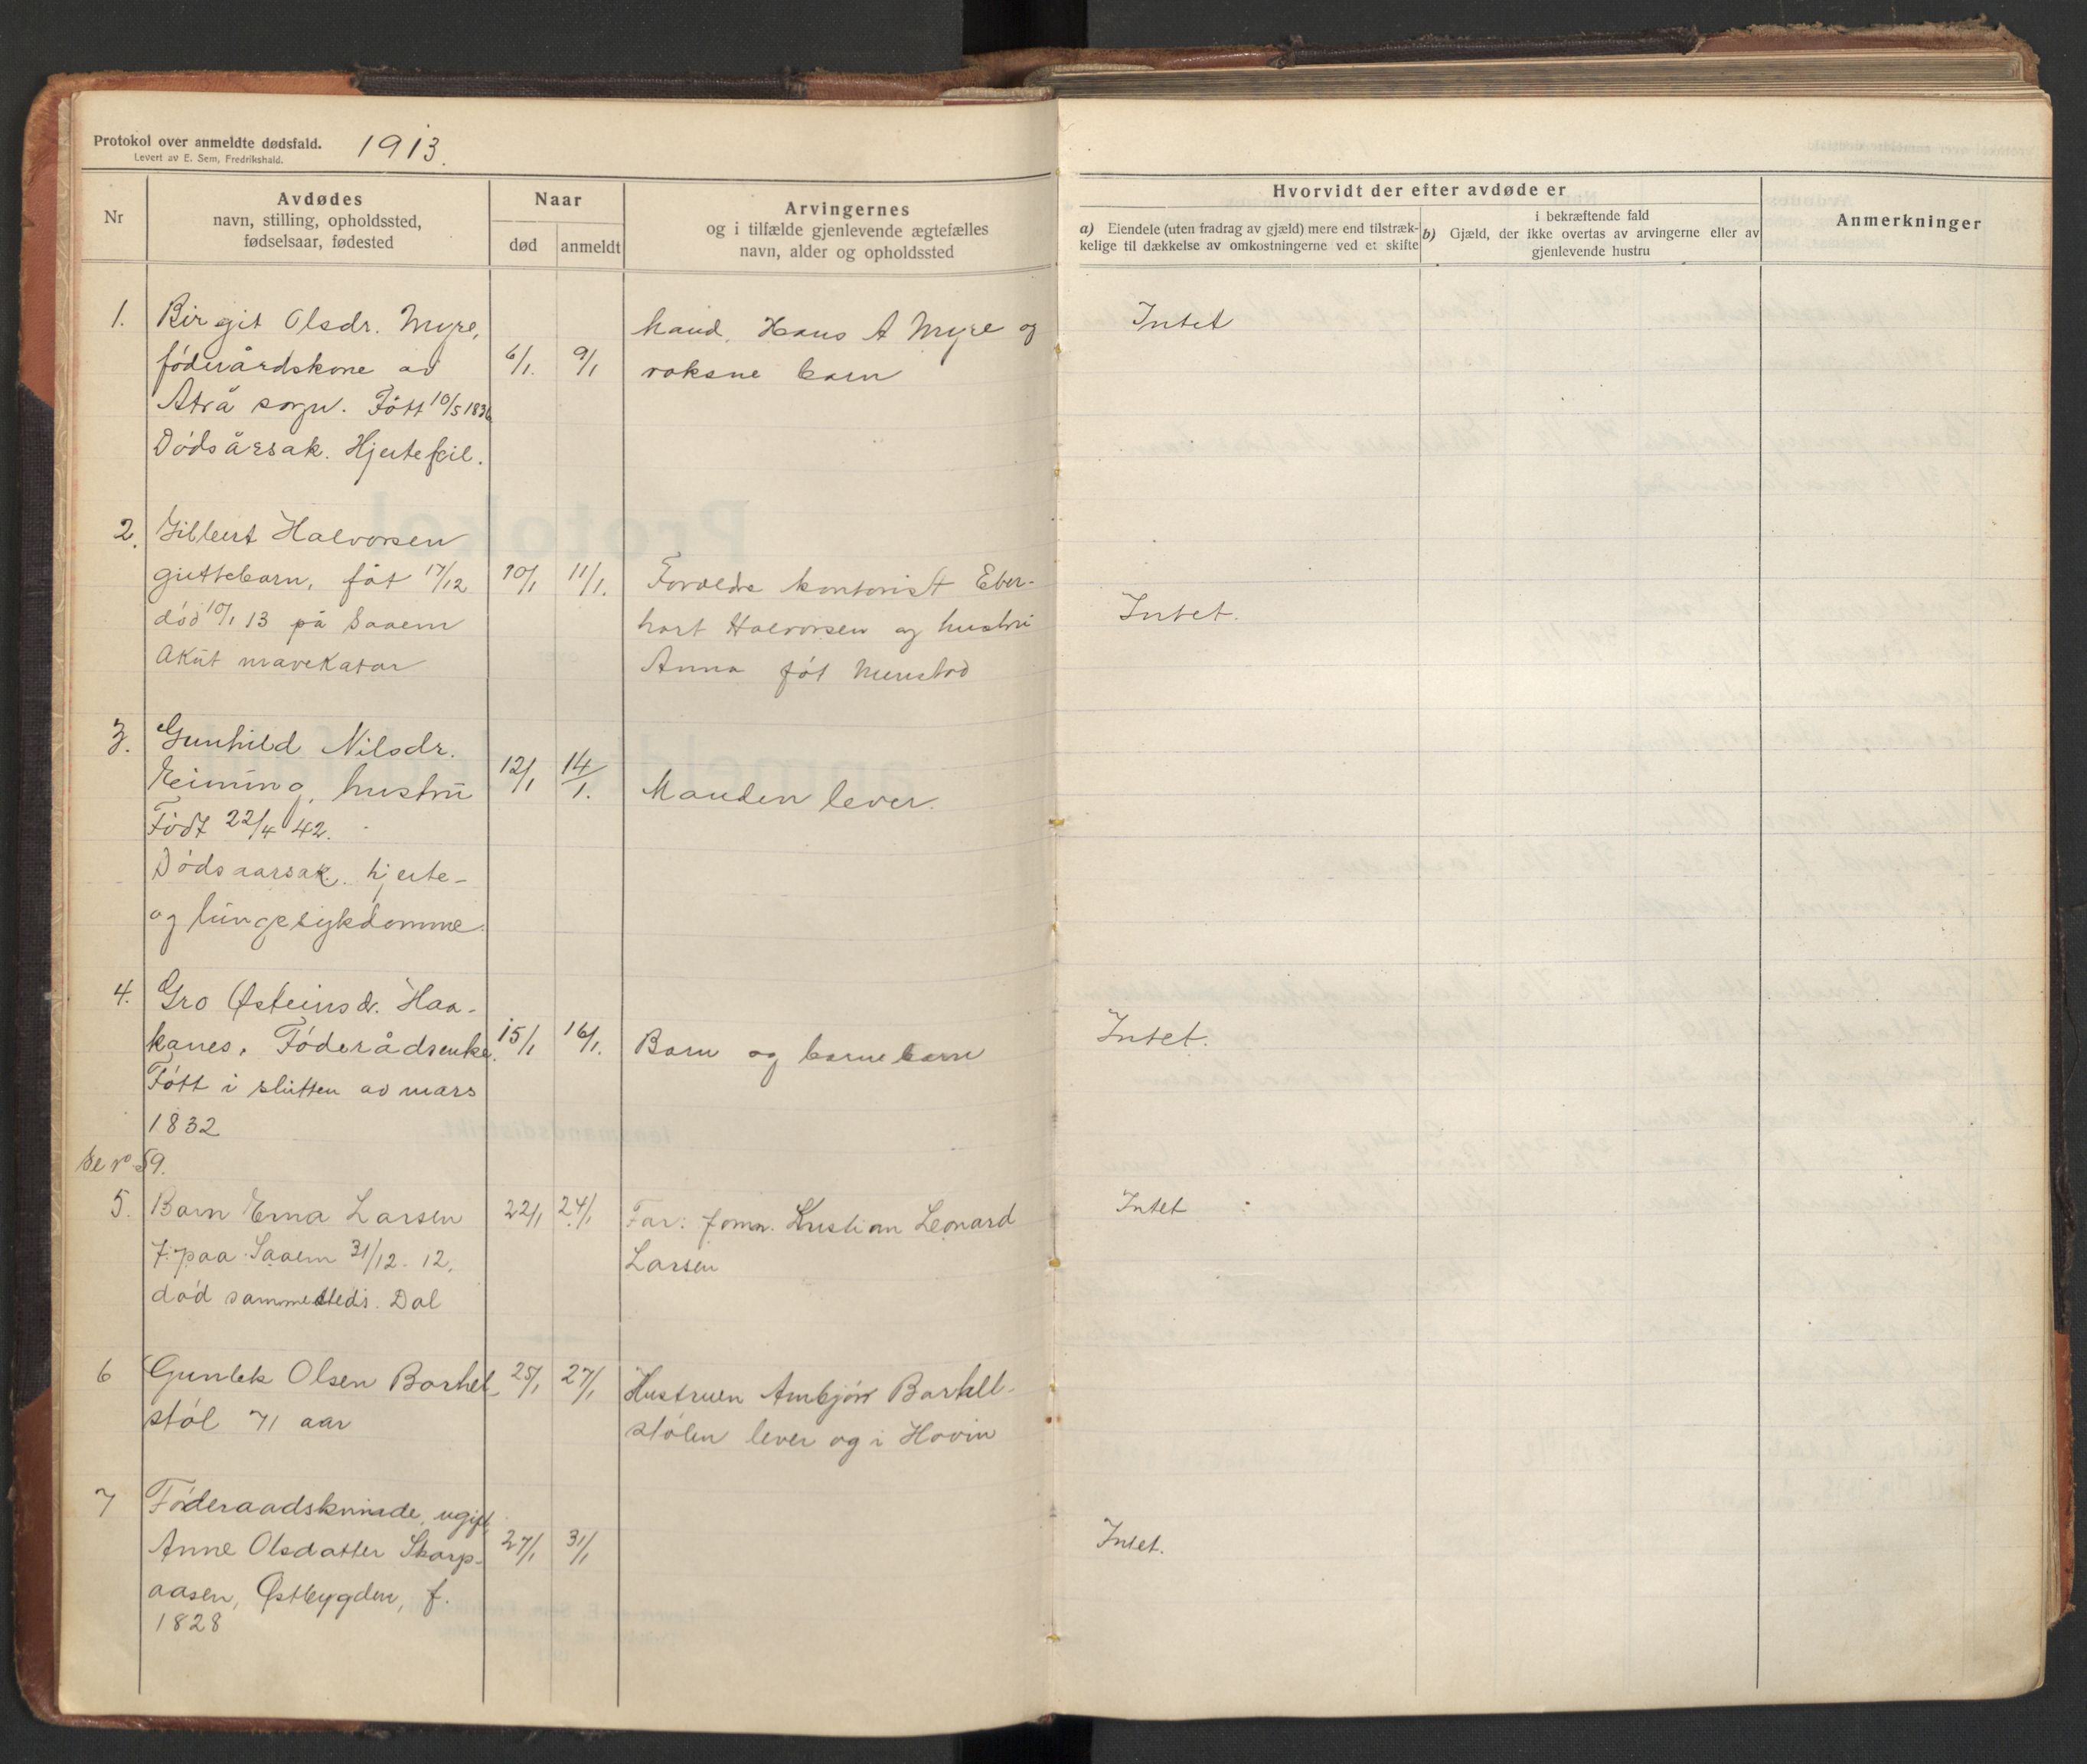 Protokol over anmeldte dødsfald.
Levert av E. Sem, Fredrikshald.
1913.
Nr
Avdødes
navn, stilling, opholdssted,
fødselsaar, fødested
Naar
død
anmeldt
Arvingernes
og i tilfælde gjenlevende ægtefælles
navn, alder og opholdssted
Hvorvidt der efter avdøde er
a) Eiendele (uten fradrag av gjæld) mere end tilstræk-
kelige til dækkelse av omkostningerne ved et skifte
i bekræftende fald
b) Gjæld, der ikke overtas av arvingerne eller av
gjenlevende hustru
Anmerkninger
1.
Birgit Olsdr. Myre,
föderårdskone av
Atrå sogn. Fött 10/5 1836
Dödsårsak. Hjertefeil.
6/1.
9/1
Mand. Hans A Myre og
voksne barn
Intet
2.
Gilbert Halvorsen
guttebarn, föt 17/12
död 10/1 13 på Saaem
Akut mavekatar
10/1
11/1.
Forældre kontorist Eber-
hart Halvorsen og hustru
Anna föt
Intet.
3.
Gunhild Nilsdr.
hustru
Födt 22/4 42.
Dödsaarsak. hjerte-
og lungesykdomme.
12/1
14/1.
Manden lever.
4.
Gro Østeinsdr. Haa-
kanes. Föderådsenke.
Fött i slutten av mars
1832
15/1
16/1.
Barn og barnebarn
Intet.
Se no 59.
5.
Barn Erna Larsen
f. paa Saaem 31/12. 12.
död sammesteds. Dal
22/1
24/1
Far: Kristian Leonard
Larsen
Intet
6
Gunlek Olsen Barhel-
stöl 71 aar
25/1
27/1
Hustruen Ambjör Barhell-
stölen lever og i Hovin
7
Föderaadskvinde, ugift
Anne Olsdatter Skarp-
aasen, Østbygden, f.
1828
27/1
31/1
Intet.